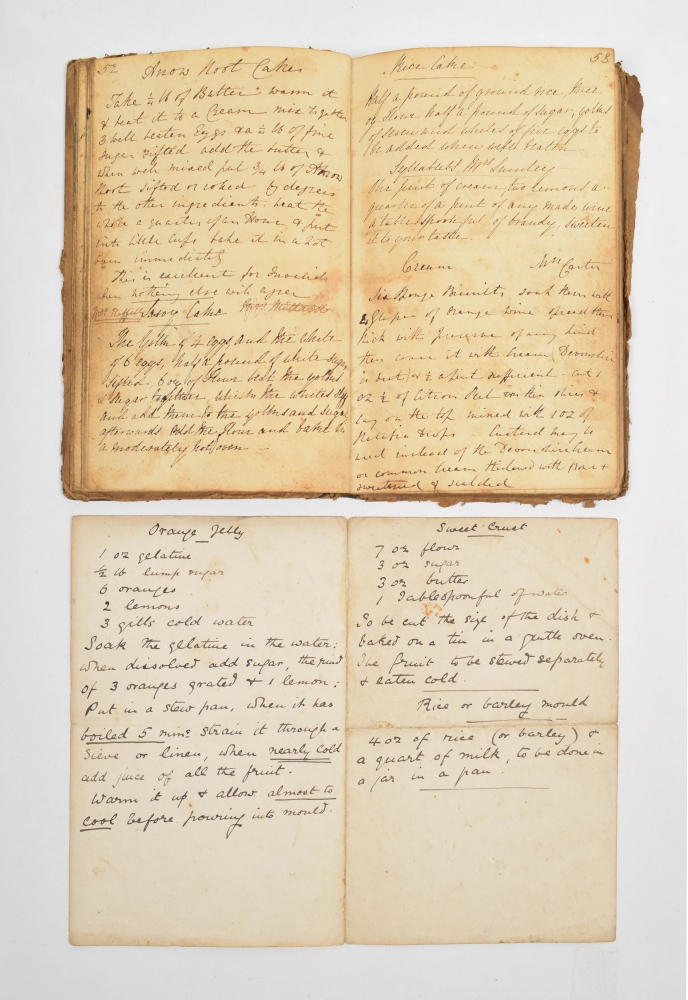 52
Arrow Root Cakes
Take ¼ lb of Butter warm it
& beat it to a Cream mix together
3 well beaten Eggs & a ½ lb of fine
sugar sifted add the butter &
when well mixed put ¾ lb of Arrow
Root sifted or rolled by degrees
to the other ingredients, beat the
whole a quarter of an Hour & put
into little Cups bake it in a hot
oven immediately
This is excellent for Invalids
when nothing else will agree
Savoy Cake
The Yolks of 4 eggs, and the white
of 6 eggs, half a pound of white sugar
sifted, 6 oz of Flour beat the yolks
& sugar together, whisk the whites
and add them to the yolks and sugar
afterwards add the flour and bake in
a moderately hot oven
53
Rice Cake
Half a pound of ground rice, three
of Flour half a pound of sugar, yolks
of seven and whites of five eggs to
be added when well beaten
Syllabubs Mrs Lumley
One pint of cream, two lemons, a
quarter of a pint of any made wine
a tablespoonful of brandy, sweeten
it to your taste
Cream Mrs Carter
Six Sponge Biscuits, soak them with
2 glasses of Orange wine spread them
thick with preserve of any kind
then cover it with cream (Devonshire
is best) & ½ a pint sufficient - cut 1
oz ½ of Citron Peel in thin slices &
lay on the top mixed with 1 oz of
Ratafia drops Custard may be
used instead of the Devonshire Cream
or common cream thickened with flour &
sweetened & scalded
Orange Jelly
1 oz gelatine
½ lb lump sugar
6 oranges
2 lemons
3 gills cold water
Soak the gelatine in the water:
when dissolved add sugar, the rind
of 3 oranges grated & 1 lemon:
Put in a stew pan, when it has
boiled 5 mins strain it through a
sieve or linen, when nearly cold
add juice of all the fruit.
Warm it up & allow almost to
cool before pouring into mould.
Sweet Crust
7 oz flour
3 oz sugar
3 oz butter
1 Tablespoonful of water
To be cut the size of the dish &
baked on a tin in a gentle oven.
The fruit to be stewed separately
& eaten cold.
Rice or barley mould
4 oz of rice (or barley) &
a quart of milk, to be done in
a jar in a pan.